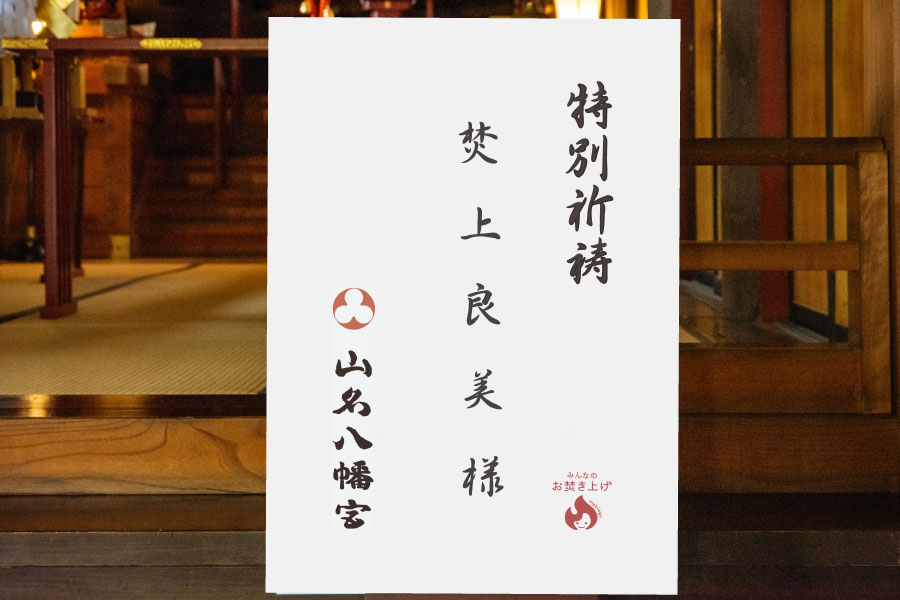 特別祈祷
みんなの
お焚き上げ
焚上良美様
山名八幡宮